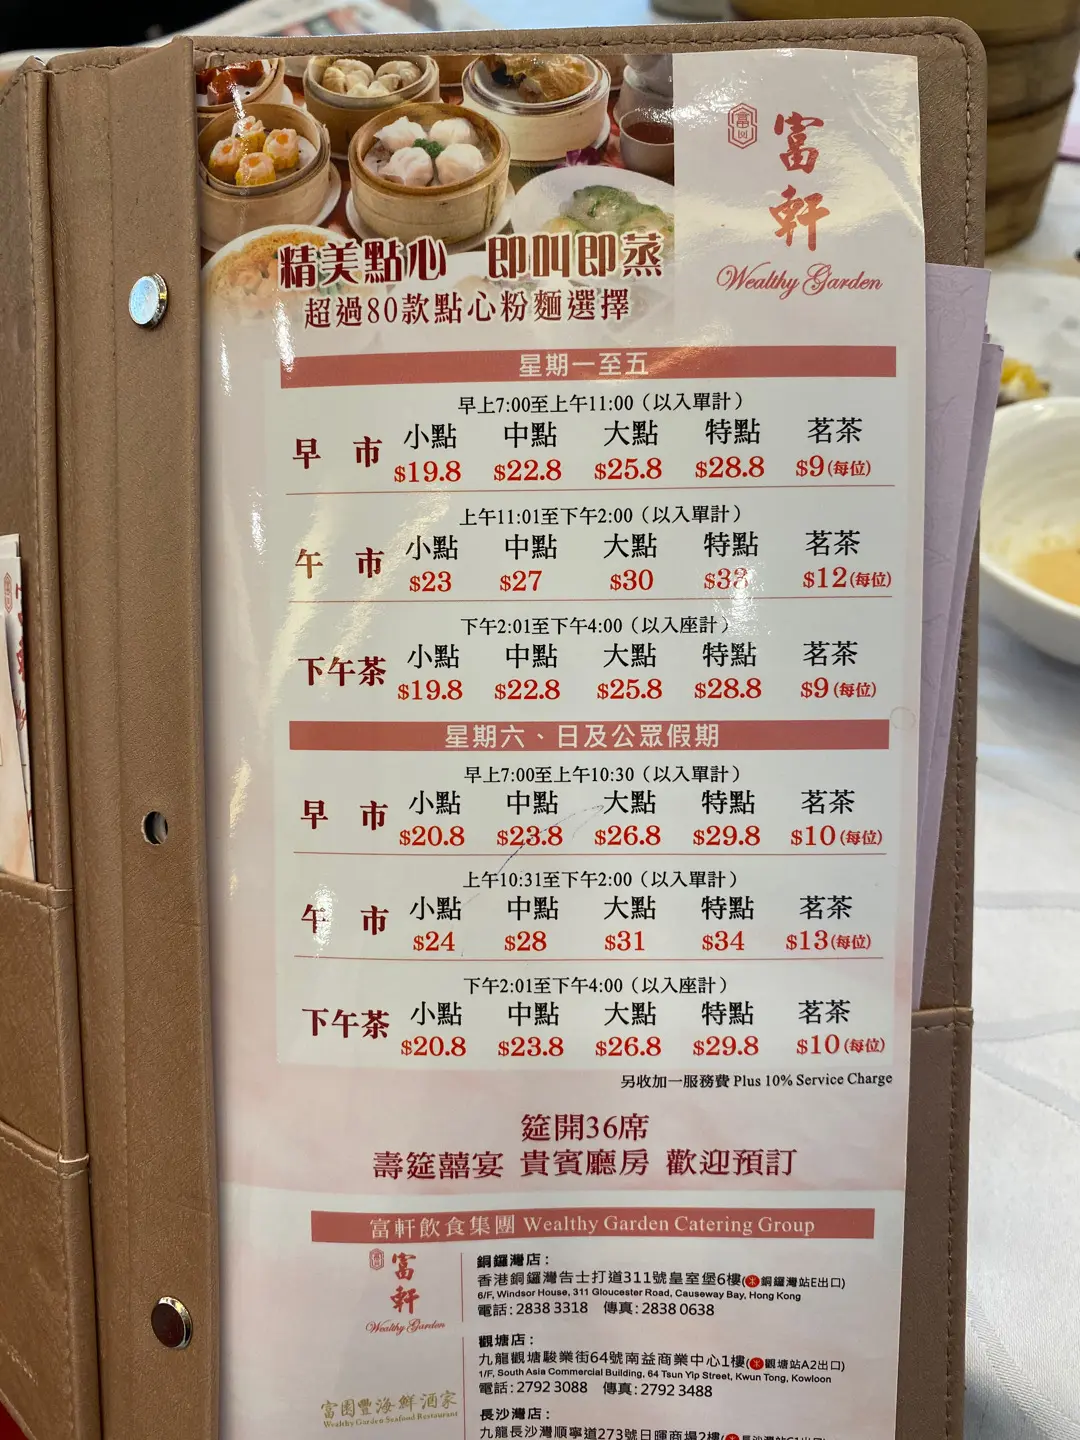 富軒
Wealthy Garden
精美點心 即叫即蒸
超過80款點心粉麵選擇
星期一至五
早上7:00至上午11:00（以入單計）
早市 小點 中點 大點 特點 茗茶
$19.8 $22.8 $25.8 $28.8 $9(每位)
上午11:01至下午2:00（以入單計）
午市 小點 中點 大點 特點 茗茶
$23 $27 $30 $33 $12(每位)
下午2:01至下午4:00（以入座計）
下午茶 小點 中點 大點 特點 茗茶
$19.8 $22.8 $25.8 $28.8 $9(每位)
星期六、日及公眾假期
早上7:00至上午10:30（以入單計）
早市 小點 中點 大點 特點 茗茶
$20.8 $23.8 $26.8 $29.8 $10(每位)
上午10:31至下午2:00（以入單計）
午市 小點 中點 大點 特點 茗茶
$24 $28 $31 $34 $13(每位)
下午2:01至下午4:00（以入座計）
下午茶 小點 中點 大點 特點 茗茶
$20.8 $23.8 $26.8 $29.8 $10(每位)
另收加一服務費 Plus 10% Service Charge
筵開36席
壽筵囍宴 貴賓廳房 歡迎預訂
富軒飲食集團 Wealthy Garden Catering Group
富軒
Wealthy Garden
銅鑼灣店：
香港銅鑼灣告士打道311號皇室堡6樓(銅鑼灣站E出口)
6/F, Windsor House, 311 Gloucester Road, Causeway Bay, Hong Kong
電話：2838 3318 傳真：2838 0638
觀塘店：
九龍觀塘駿業街64號南益商業中心1樓(觀塘站A2出口)
1/F, South Asia Commercial Building, 64 Tsun Yip Street, Kwun Tong, Kowloon
電話：2792 3088 傳真：2792 3488
富圍豐海鮮酒家
Wealthy Garden Seafood Restaurant
長沙灣店：
九龍長沙灣順寧道273號日暉商場2樓(長沙灣站C1出口